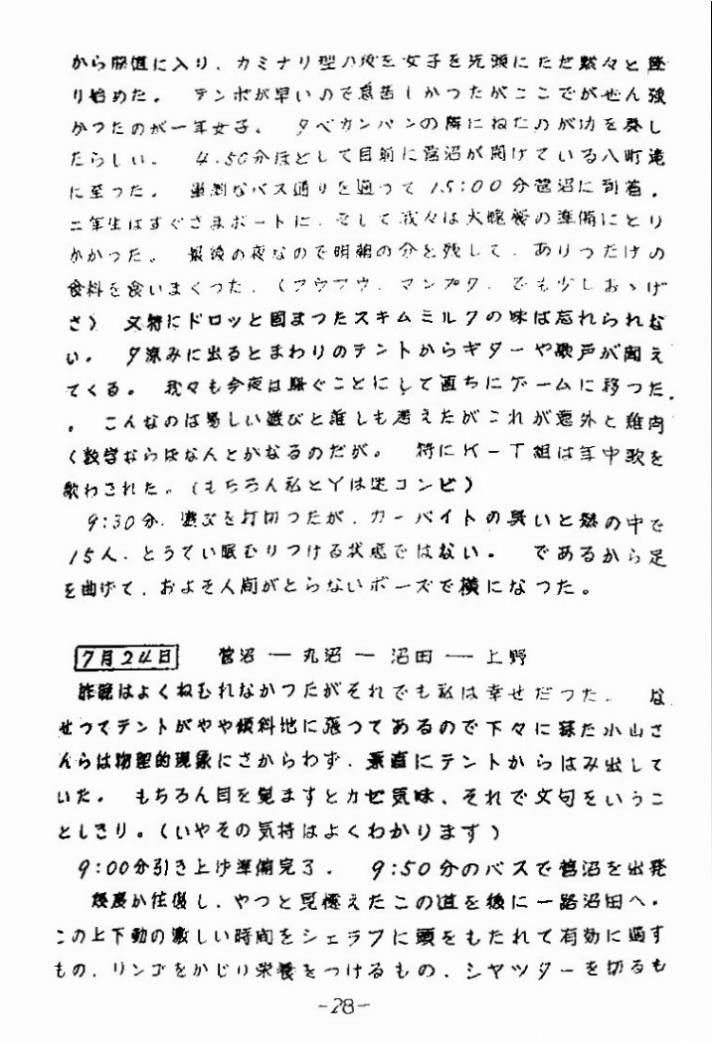 から隊伍に入り、カミナリ型の彼を女子を先頭にただ黙々と登
り始めた。 テンポが早いので息苦しかったがここでがぜん強
かつたのが一年女子。 夕べカンパンの隣にねたのが功を奏し
たらしい。 4.50分ほどして目前に菅沼が開けている八町滝
に至つた。 単調なバス通りを通つて15:00分菅沼に到着。
二年生はすぐさまボートに、そして我々は大晩餐の準備にとり
かかつた。 最後の夜なので明朝の分と残して、ありつたけの
食料を食いまくつた。(フウフウ、マンプク、でも少しおゝげ
さ) 又特にドロッと固まつたスキムミルクの味は忘れられな
い。 夕涼みに出るとまわりのテントからギターや歌声が聞え
てくる。 我々も今夜は騒ぐことにして直ちにゲームに移つた。
。 こんなのは易しい遊びと誰しも考えたがこれが意外と難肉
く数学ならほなんとかなるのだが。 特にK-T組は年中歌を
歌わされた。(もちろん私とYは迷コンビ)
9:30分、遊びを打切つたが、カーバイトの臭いと熱の中で
15人、とうてい眠むりつける状態ではない。 であるから足
を曲げて、およそ人間がとらないポーズで横になつた。
7月24日 菅沼―丸沼―沼田―上野
昨晩はよくねむれなかつたがそれでも私は幸せだつた。 な
せつてテントがやや傾斜地に張つてあるので下々に寝た小山さ
んらは物理的現象にさからわず、素直にテントからはみ出して
いた。 もちろん目を覚ますとカゼ気味、それで文句をいうこ
としきり。(いやその気持はよくわかります)
9:00分引き上げ準備完了。 9:50分のバスで菅沼を出発
幾度か往復し、やつと見極えたこの道を後に一路沼田へ。
この上下動の激しい時間をシェラフに頭をもたれて有効に過す
もの、リンゴをかじり栄養をつけるもの、シヤツターを切るも
-28-